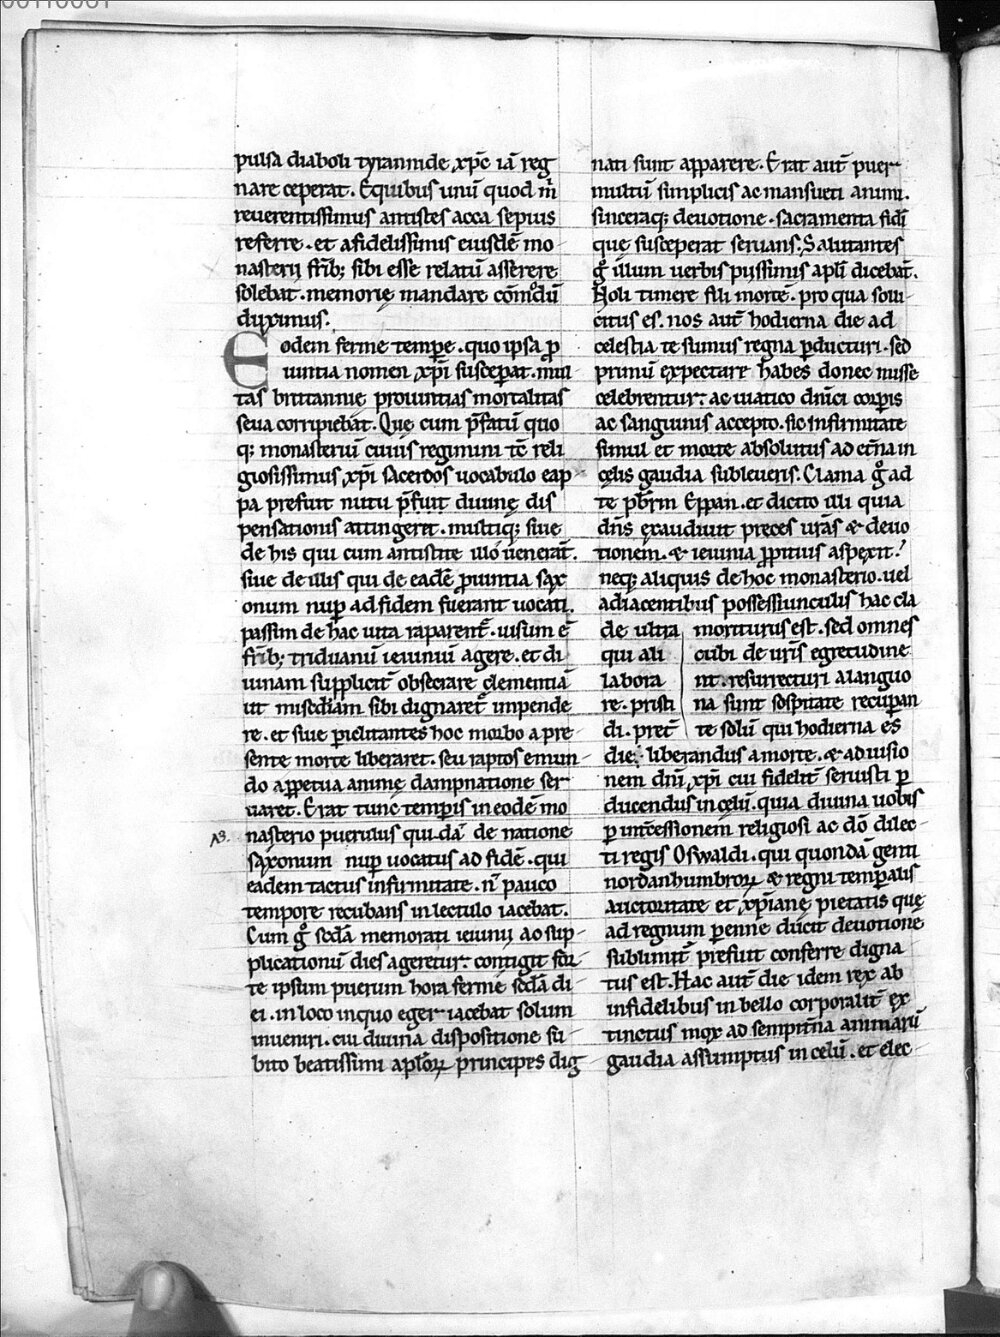 pulsa diaboli tyrannide, xp̄c iā reg
nare ceperat. Equibus unū quod m̄
reuerentissimus antistes acca sepius
referre. et afidelissimis eiusdē mo-
nasterii fr̄ib; sibi esse relatū asserere
solebat. memorię mandare cōmodū
duximus.
Eodem ferme tempe̱. quo ipsa ꝓ
uintia nomen xp̄i susceperat. mul-
tas brittannię prouintias mortalitas
seua corripiebat. Quę cum p̄fatū quo
q; monasteriū cuius regimini tc̄ reli
giosissimus xp̄i sacerdos uocabulo eap
pa prefuit nutu p̄fuit diuinę dis
pensationis attingeret. multiq; siue
de his qui cum antistite illo uenerāt.
siue de illis qui de eadē ꝓuintia sax
onum nuꝑ ad fidem fuerant uocati.
passim de hac uita raparent᷑. uisum ē
fr̄ib; triduanū ieiuniū agere. et di
uinam supplicit̄ obsecrare clementiā
ut misc̄diam sibi dignaret᷑ impende
re. et siue ꝑiclitantes hoc morbo a pre-
sente morte liberaret. seu raptos e mun-
do a ꝑpetua animę dampnatione ser
uaret. Erat tunc tempꝑis in eodē mo
nasterio puerulus qui dā de natione
saxonum nuꝑ uocatus ad fidē. qui
eadem tactus infirmitate. n̄ pauco
tempore recubans in lectulo iacebat.
Cum g͛ sc̄dā memorati ieiunii ac sup-
plicationū dies ageretur: contigit for-
te ipsum puerum hora ferme sc̄dā di-
ei. in loco in quo eger iacebat solum
inueniri. cui diuina dispositione su
bito beatissimi apl̄oꝝ principes dig
nati sunt apparere. Erat aut̄ puer
multū simplicis ac mansueti animi.
sinceraq; deuotione. sacramenta fidī
quę susceperat seruans. Salutantes
g͛ illum uerbis piissimis apl̄i dicebāt.
Noli timere fili mortē. pro qua solli-
citus es. nos aut̄ hodierna die ad
celestia te sumus regna ꝑducturi. sed
primū expectare habes donec missę
celebrentur: ac uiatico dn̄ici corꝑis
ac sanguinis accepto. sic infirmitate
simul et morte absolutus ad et̄na in
cęlis gaudia subleueris. Clama g͛ ad
te pb̄rm Eppan. et dicito illi quia
dn̄s exaudiuit preces ur̄as & deuo
tionem. & ieiunia ꝓpitius aspexit:
neq; aliquis de hoc monasterio. uel
adiacentibus possessiunculis hac cla
de ultra moriturus est. sed omnes
qui ali cubi de ur̄is egretudine
labora nt. resurrecturi a languo
re. pristi na sunt sospitate recuꝑan
di. pret̄ te solū qui hodierna es
die liberandus a morte. & ad uisio
nem dn̄i xp̄i cui fidelit̄ seruisti ꝑ
ducendus in celū. quia diuina uobis
ꝑ int̄cessionem religiosi ac dō dilec-
ti regis Oswaldi. qui quondā genti
nordanhumbroꝝ & regni temꝑalis
auctoritate et xp̄ianę pietatis quę
ad regnum ꝑenne dūcit deuotione
sublimit̄ prefuit conferre digna
tus est. Hac aut̄ die idem rex ab
infidelibus in bello corporalit̄ ex
tinctus mox ad sempit̄na animarū
gaudia assumptus in celū. et elec-